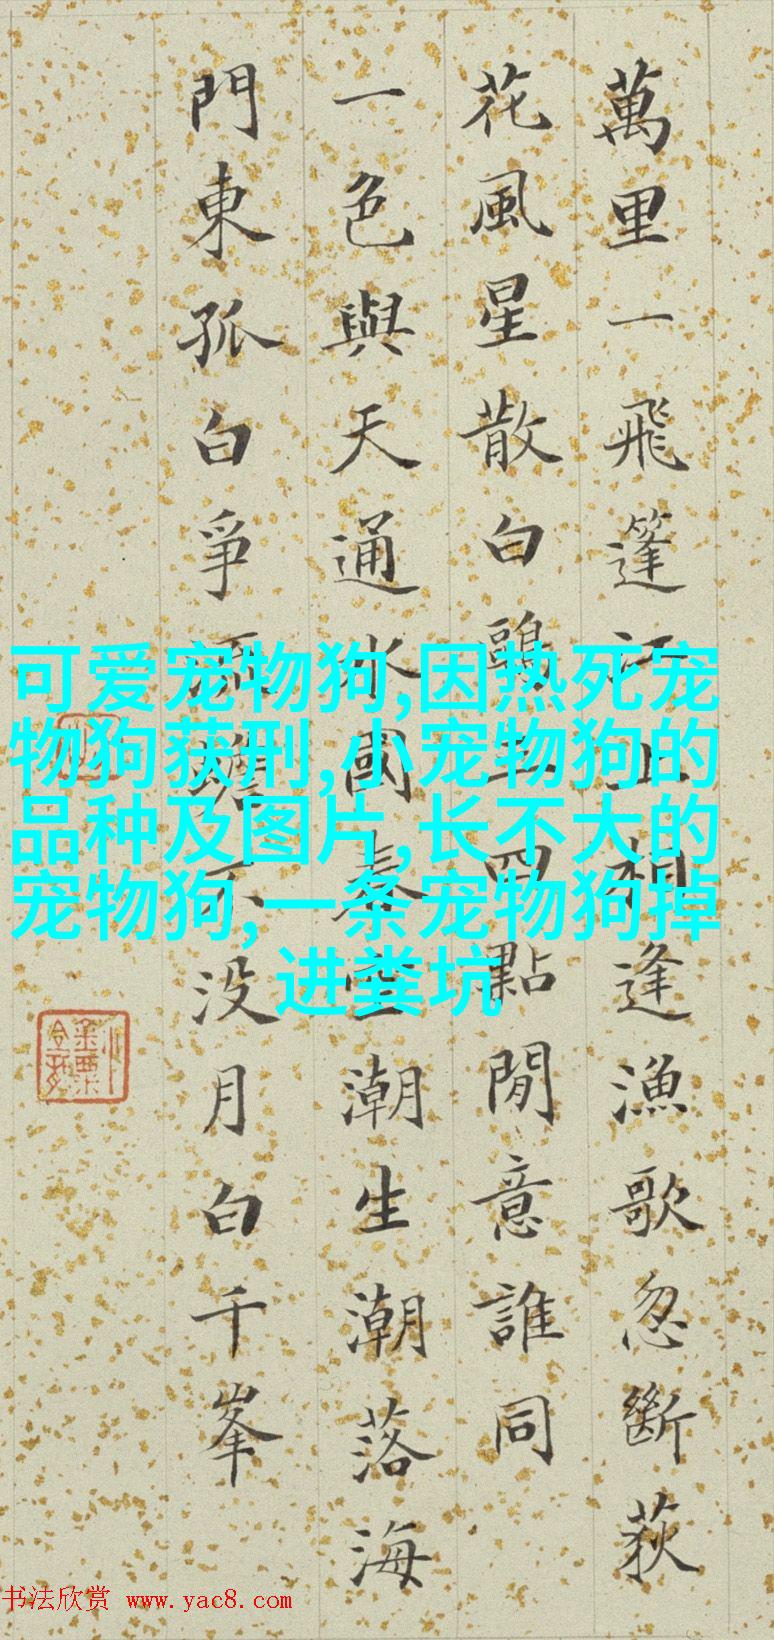 萬里一飛篷江上相逢漁歌忽斷荻
花風星散白鷗三四點閒意誰同
一色與天通水國春空潮生潮落海
門東孤白爭流蟾不沒月白千峯
可爱宠物狗,因热死宠
物狗获刑,小宠物狗的
品种及图片,长不大的
宠物狗,一条宠物狗掉
进粪坑
书法欣赏 www.yac8.com